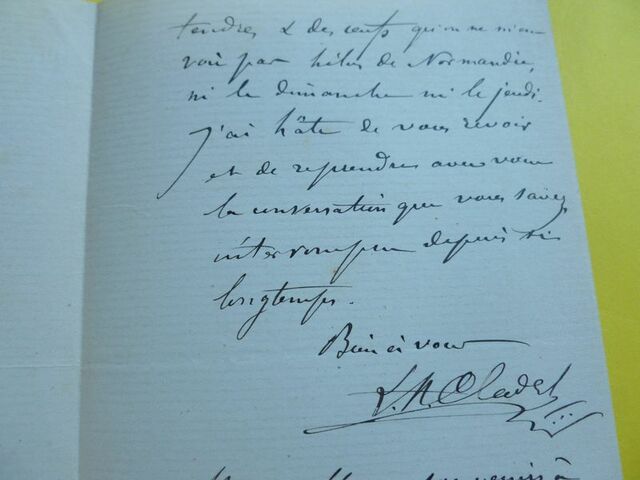 tendres & des œufs qu'on ne m'en
voie pas hélas de Normandie,
ni le dimanche ni le jeudi.
J'ai hâte de vous revoir
et de reprendre avec vous
la conversation que vous savez
interrompue depuis si
longtemps.
Bien à vous
L. A. Cladel